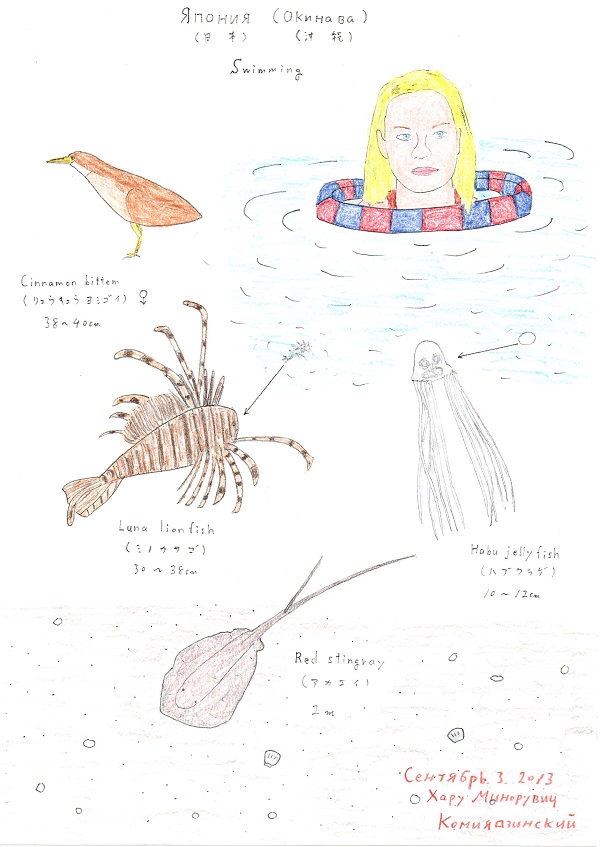 Япония (Окинава)
(日本) (沖縄)
Swimming
Cinnamon bittern
(リュウキュウヨシゴイ) ♀
38~40cm
Luna lionfish
(ミノカサゴ)
30~38cm
Habu jellyfish
(ハブクラゲ)
10~12cm
Red stingray
(アカエイ)
2m
Сентябрь. 3. 2013
Хару Мынорувич